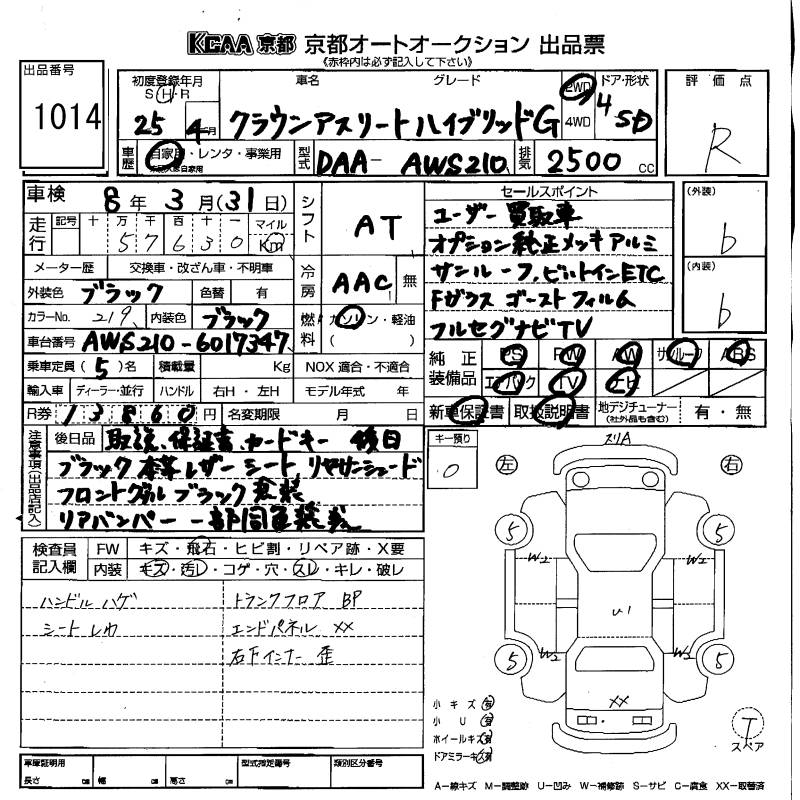 KCAA 京都 京都オートオークション 出品票
《赤枠内は必ず記入して下さい》
出品番号
1014
初度登録年月 車名 グレード ドア・形状
S H・R 25 4月 クラウンアスリート ハイブリッドG 2WD 4WD 4 SD
車歴 自家用・レンタ・事業用 型式 DAA- AWS210 排気 2500 CC
評価点
R
車検 8年 3月(31日) シフト AT
走行 記号 十 万 千 百 十 一 マイル
5 7 6 3 0 Km
メーター歴 交換車・改ざん車・不明車 冷房 AAC 無
外装色 ブラック 色替 有
カラーNo. 219 内装色 ブラック 燃料 ガソリン・軽油
( )
車台番号 AWS210-6017347
乗車定員 (5)名 積載量 Kg NOX 適合・不適合
輸入車 ディーラー・並行 ハンドル 右H・左H モデル年式 年
R券 13860円 名変期限 月 日
セールスポイント
ユーザー買取車
オプション純正メッキアルミ
サンルーフ、ビルトインETC
Fガラス ゴーストフィルム
フルセグナビTV
(外装)
b
(内装)
b
純正装備品 PS PW AW サンルーフ ABS
エアバック TV ナビ
新車保証書 取扱説明書 地デジチューナー(社外品も含む) 有・無
注意事項(出品店記入)
後日品 取説、保証書、カードキー 後日
ブラック本革レザーシート、リヤサンシェード
フロントグリル ブラック塗装
リアバンパー 一部同色装
検査員記入欄 FW キズ・飛石・ヒビ割・リペア跡・X要
内装 キズ・汚レ・コゲ・穴・スレ・キレ・破レ
ハンドル ハゲ トランクフロア BP
シート しわ エンドパネル XX
右下インナー 歪
キー預り
0
スリA
左 右
5 5
W2 W2
U1
W2 W2
5 5
XX
小キズ 有
小U 有
ホイールキズ 有
ドアミラーキズ 有
T
スペア
車庫証明用 型式指定番号 類別区分番号
長さ cm 幅 cm 高さ cm
A−線キズ M−調整跡 U−凹み W−補修跡 S−サビ C−腐食 XX−取替済